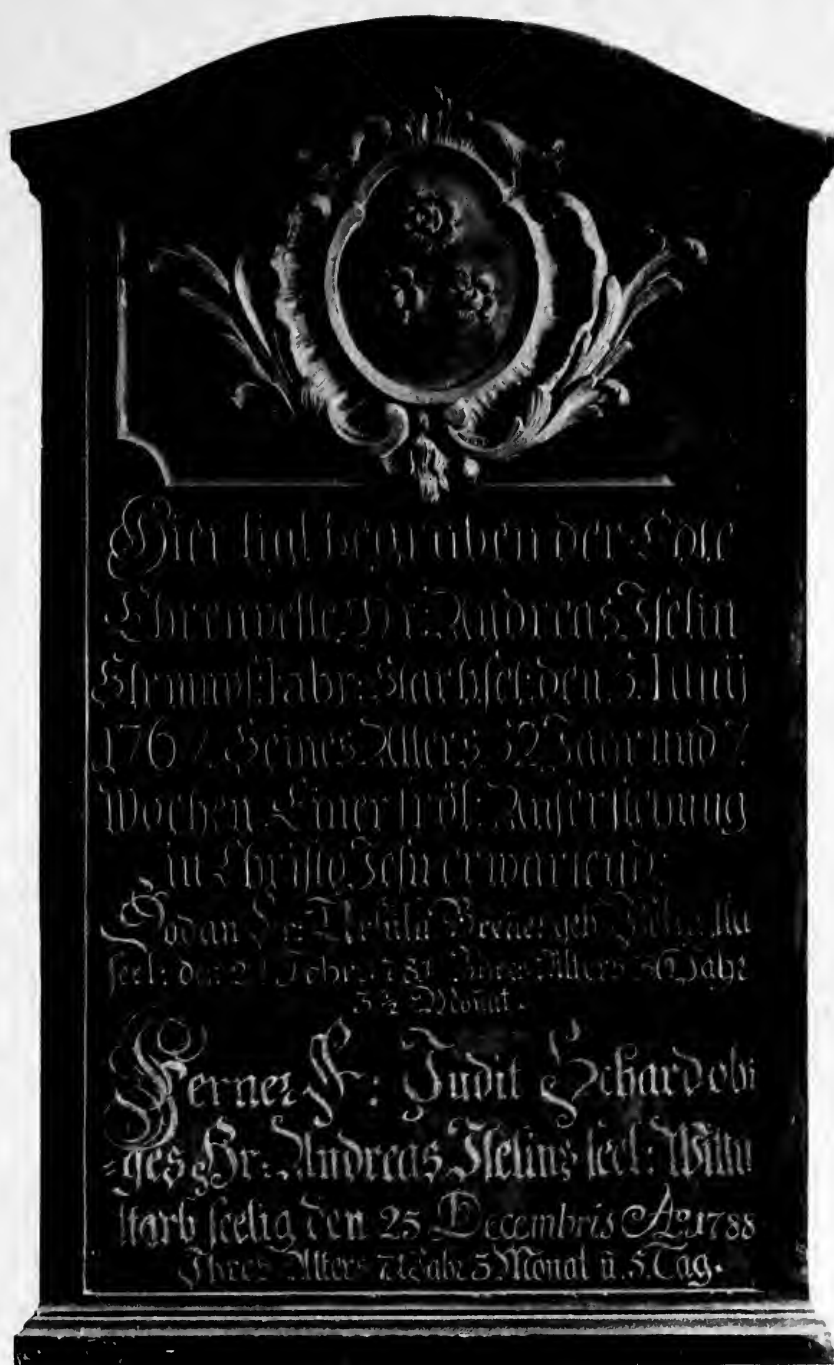 Hier ligt begraben der Edle
Ehrenveste Hr: Andreas Iselin
Starb sel: den 5. Junij
Seines Alters 52 Jahr und 7
Wochen Einer fröl: Auferstehung
in Christo Jesu erwartend:
Sodan Fr: Ursula geb:
seel: den Alters Jahr
5½ Monat.
Ferner F: Judit Schard obi
=ges Hr: Andreas Iselins seel: Wittu
starb seelig den 25 Decembris Ao. 1788
Ihres Alters Jahr 5 Monat ū. 5. Tag.